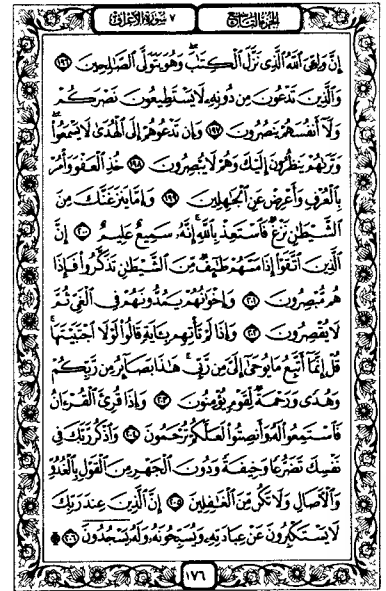 الجزء التاسع
٧ سورة الأعراف
إِنَّ وَلِـِّۧىَ ٱللَّهُ ٱلَّذِى نَزَّلَ ٱلْكِتَٰبَ ۖ وَهُوَ يَتَوَلَّى ٱلصَّٰلِحِينَ ١٩٦
وَٱلَّذِينَ تَدْعُونَ مِن دُونِهِۦ لَا يَسْتَطِيعُونَ نَصْرَكُمْ
وَلَآ أَنفُسَهُمْ يَنصُرُونَ ١٩٧ وَإِن تَدْعُوهُمْ إِلَى ٱلْهُدَىٰ لَا يَسْمَعُوا۟ ۖ
وَتَرَىٰهُمْ يَنظُرُونَ إِلَيْكَ وَهُمْ لَا يُبْصِرُونَ ١٩٨ خُذِ ٱلْعَفْوَ وَأْمُرْ
بِٱلْعُرْفِ وَأَعْرِضْ عَنِ ٱلْجَٰهِلِينَ ١٩٩ وَإِمَّا يَنزَغَنَّكَ مِنَ
ٱلشَّيْطَٰنِ نَزْغٌ فَٱسْتَعِذْ بِٱللَّهِ ۚ إِنَّهُۥ سَمِيعٌ عَلِيمٌ ٢٠٠ إِنَّ
ٱلَّذِينَ ٱتَّقَوْا۟ إِذَا مَسَّهُمْ طَٰٓئِفٌ مِّنَ ٱلشَّيْطَٰنِ تَذَكَّرُوا۟ فَإِذَا
هُم مُّبْصِرُونَ ٢٠١ وَإِخْوَٰنُهُمْ يَمُدُّونَهُمْ فِى ٱلْغَىِّ ثُمَّ
لَا يُقْصِرُونَ ٢٠٢ وَإِذَا لَمْ تَأْتِهِم بِـَٔايَةٍ قَالُوا۟ لَوْلَا ٱجْتَبَيْتَهَا ۚ
قُلْ إِنَّمَآ أَتَّبِعُ مَا يُوحَىٰٓ إِلَىَّ مِن رَّبِّى ۚ هَٰذَا بَصَآئِرُ مِن رَّبِّكُمْ
وَهُدًى وَرَحْمَةٌ لِّقَوْمٍ يُؤْمِنُونَ ٢٠٣ وَإِذَا قُرِئَ ٱلْقُرْءَانُ
فَٱسْتَمِعُوا۟ لَهُۥ وَأَنصِتُوا۟ لَعَلَّكُمْ تُرْحَمُونَ ٢٠٤ وَٱذْكُر رَّبَّكَ فِى
نَفْسِكَ تَضَرُّعًا وَخِيفَةً وَدُونَ ٱلْجَهْرِ مِنَ ٱلْقَوْلِ بِٱلْغُدُوِّ
وَٱلْـَٔاصَالِ وَلَا تَكُن مِّنَ ٱلْغَٰفِلِينَ ٢٠٥ إِنَّ ٱلَّذِينَ عِندَ رَبِّكَ
لَا يَسْتَكْبِرُونَ عَنْ عِبَادَتِهِۦ وَيُسَبِّحُونَهُۥ وَلَهُۥ يَسْجُدُونَ ۩ ٢٠٦
١٧٦